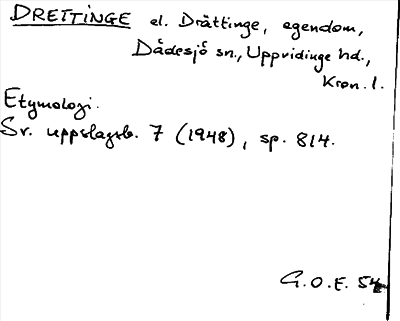 DRETTINGE el. Drättinge, egendom,
Dädesjö sn., Uppvidinge hd.,
Kron. l.
Etymologi.
Sv. uppslagsb. 7 (1948), sp. 814.
G.O.E. 54